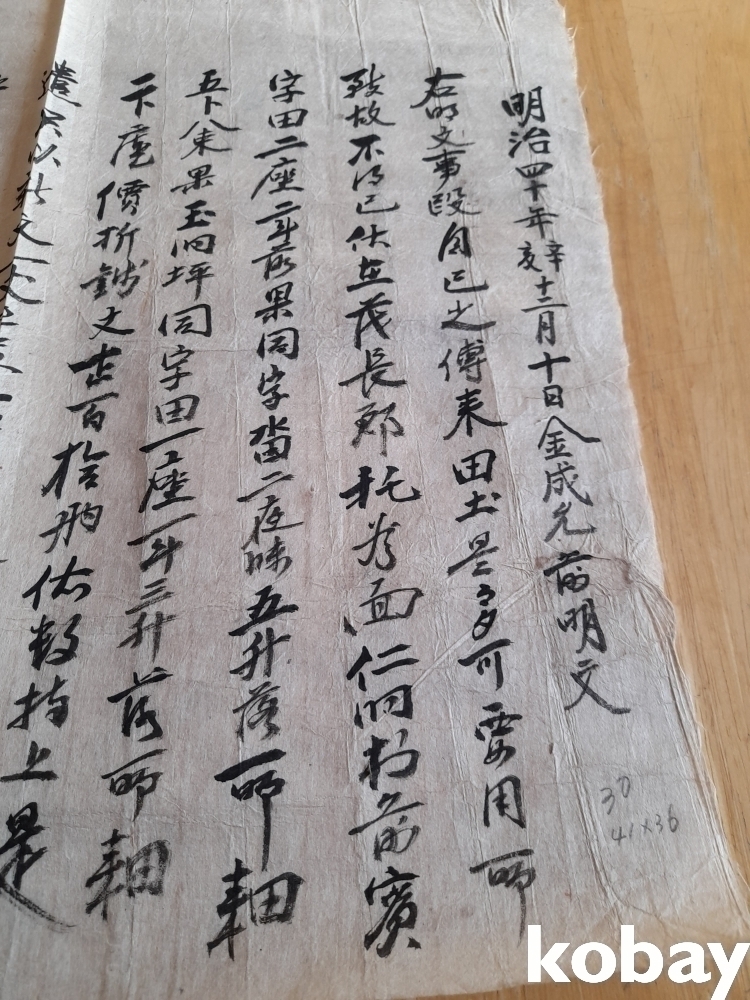 明治四十年辛亥十二月十日金成允前明文
右明文事段自己之傳来田土是多可要用所
致故不得已伏在茂長郡托谷面仁川村前賓
字田二座二斗落果同字畓二夜味五升落所畊
五卜八束果玉洞坪同字田一座一斗三升落所畊
二卜庫價折錢文百拾兩依数捧上是
遣只以新文一
30
41×36
kobay